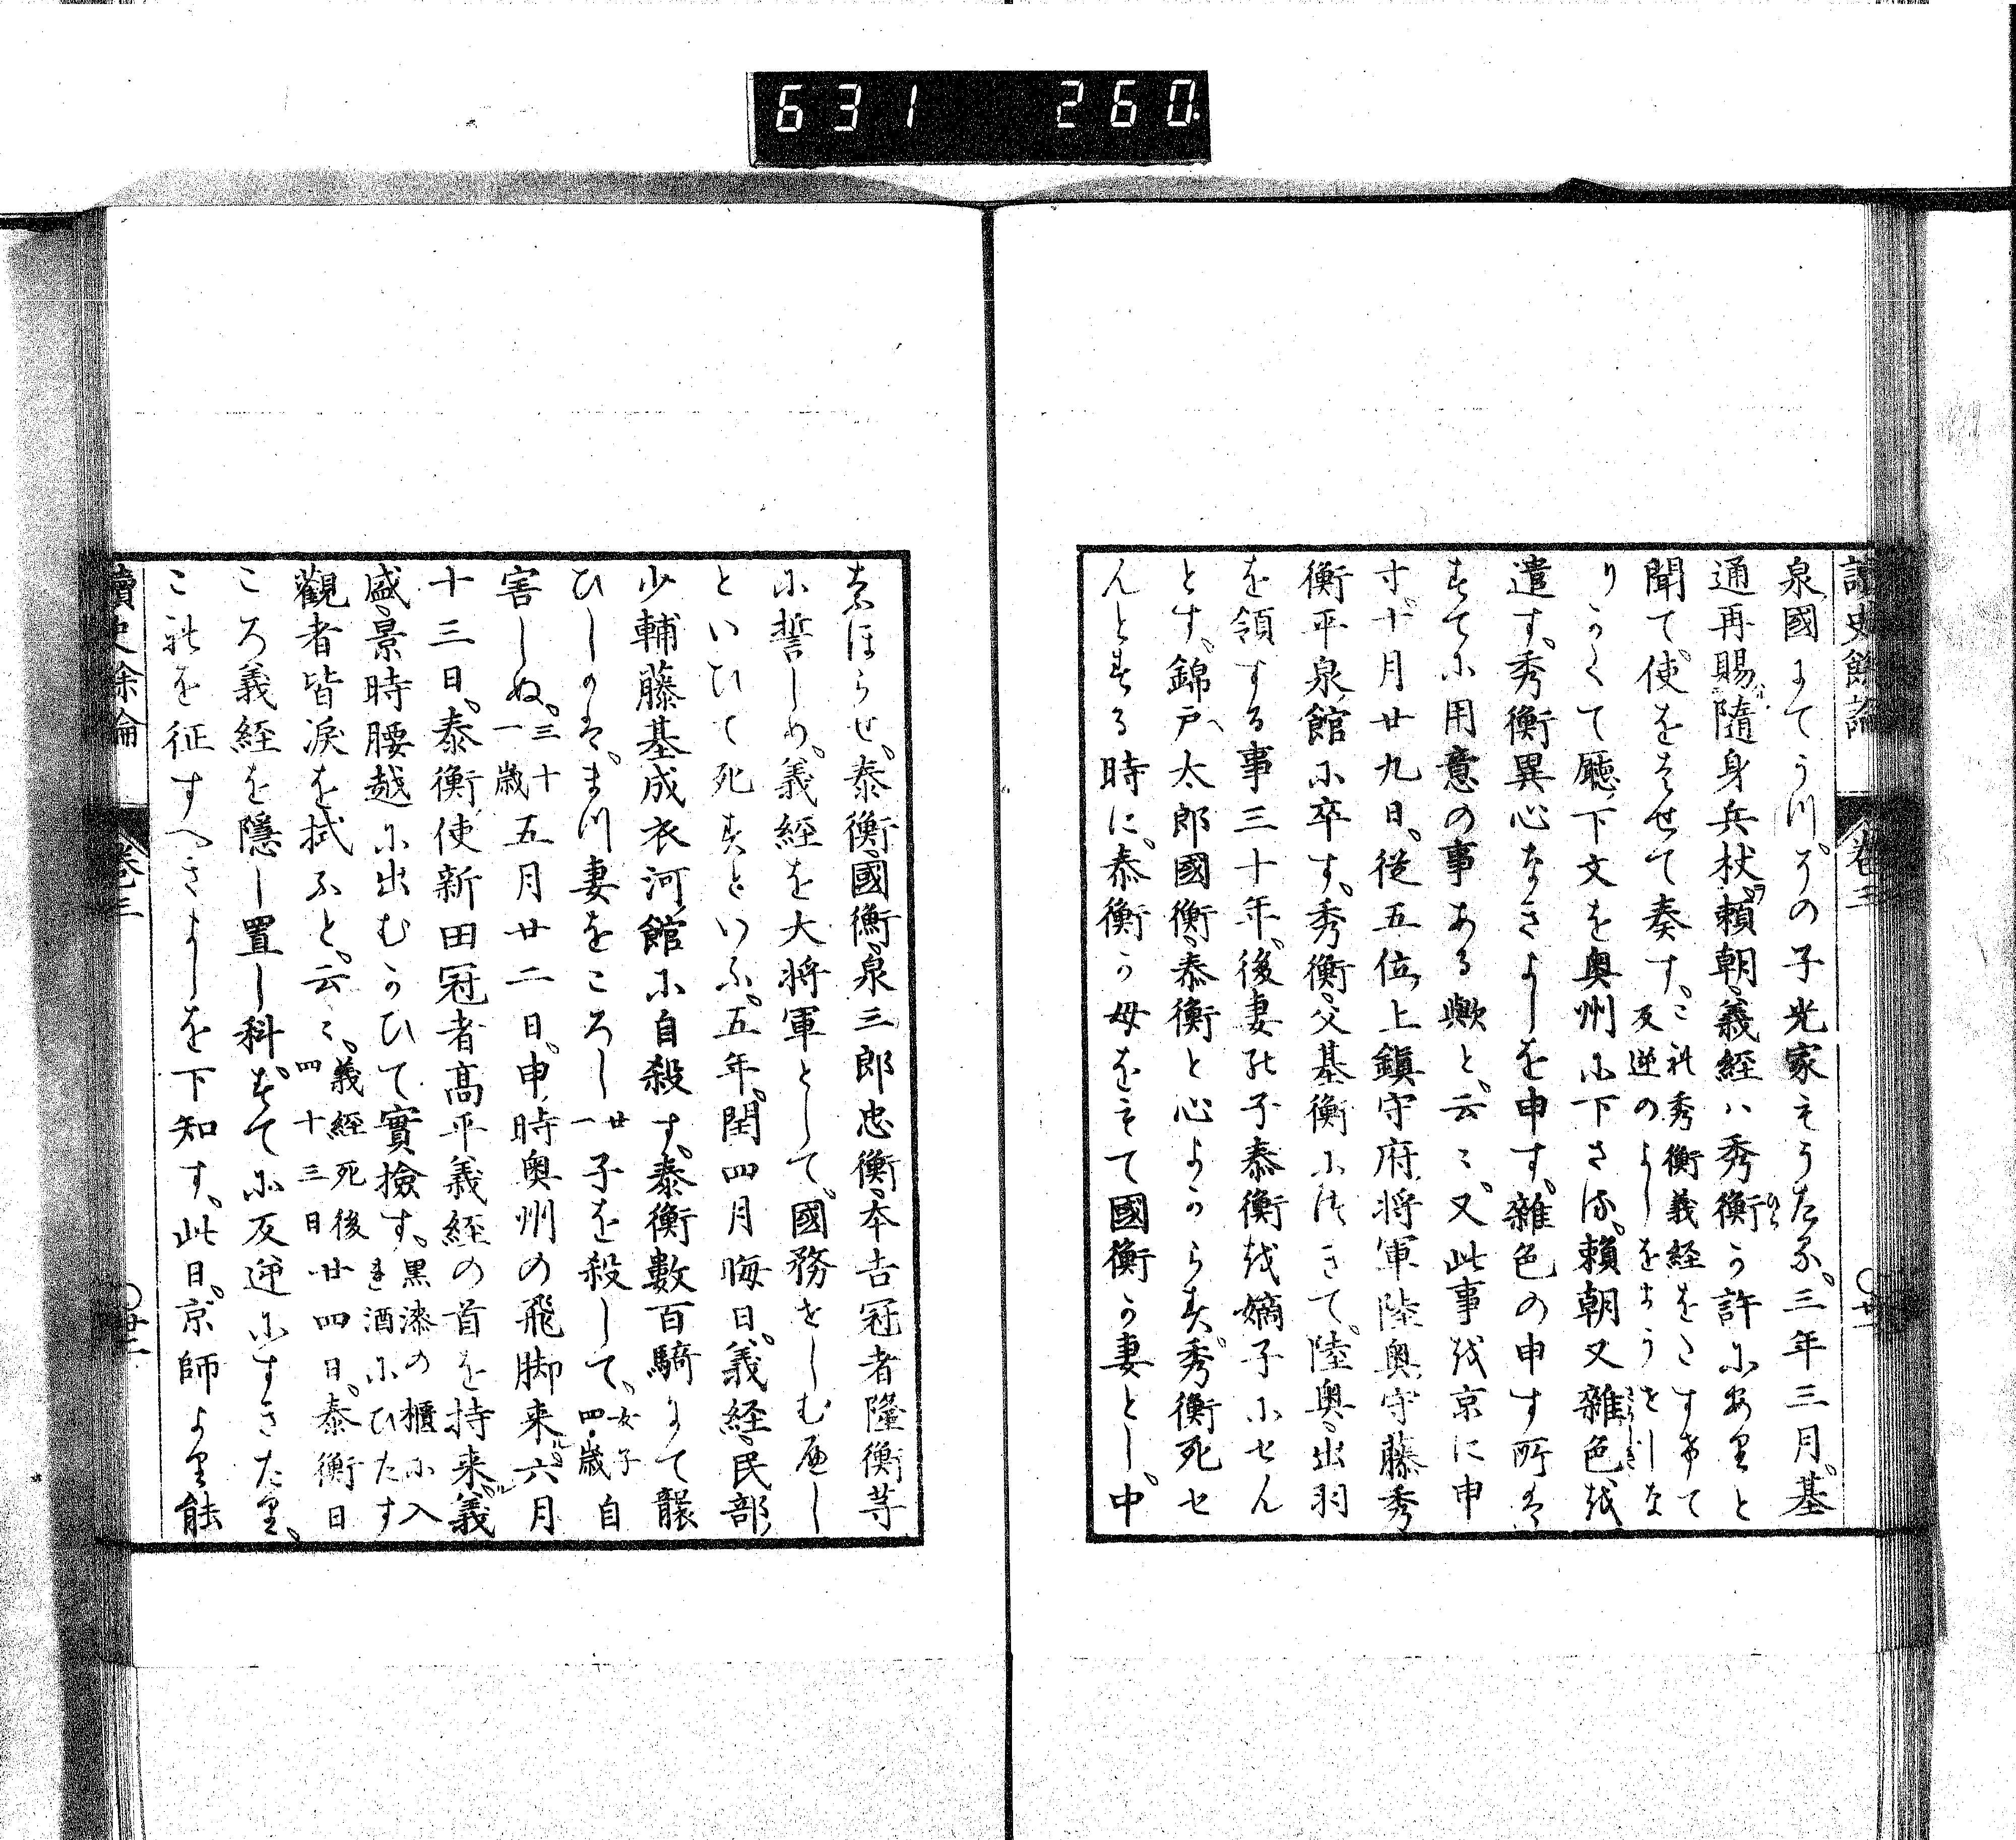 631 260
讀史餘論 卷三 〇廿一
泉國にてうつ。その子光家をうたる。三年三月。基
通再賜隨身兵杖。頼朝義経ハ秀衡か許にありと
聞て。使をはせて奏す。これ秀衡義経をたすけて
反逆のよしをまうをしな
りかくて廳下文を奥州に下さる。頼朝又雜色を
遣す。秀衡異心なきよしを申す。雜色の申す所は
すてに用意の事ある歟と。云々。又此事を京に申
す。十月廿九日。従五位上鎮守府将軍陸奥守藤秀
衡平泉館に卒す。秀衡父基衡につきて。陸奥出羽
を領する事三十年。後妻の子泰衡を嫡子にせん
とす。錦戸太郎國衡泰衡と心よからす。秀衡死せ
んとする時に。泰衡か母をして國衡か妻とし。中
なほらせ。泰衡國衡泉三郎忠衡本吉冠者隆衡等
に誓しめ。義経を大将軍として。國務をしむへし
といひて死すといふ。五年。閏四月晦日。義経民部
少輔藤基成衣河館に自殺す。泰衡數百騎にて襲
ひしかは。まつ妻をころし廿一子を殺して。女子四歳自
害しぬ。三十一歳五月廿二日。申時奥州の飛脚来。六月
十三日。泰衡使新田冠者髙平義経の首を持来。義
盛景時腰越に出むかひて實撿す。黒漆の櫃に入
美酒にひたす
觀者皆涙を拭ふと。云々。義経死後
四十三日廿四日。泰衡日
ころ義経を隠し置し科。すてに反逆にすきたり。
これを征すへきよしを下知す。此日。京師より能
讀史餘論 卷三 〇廿二